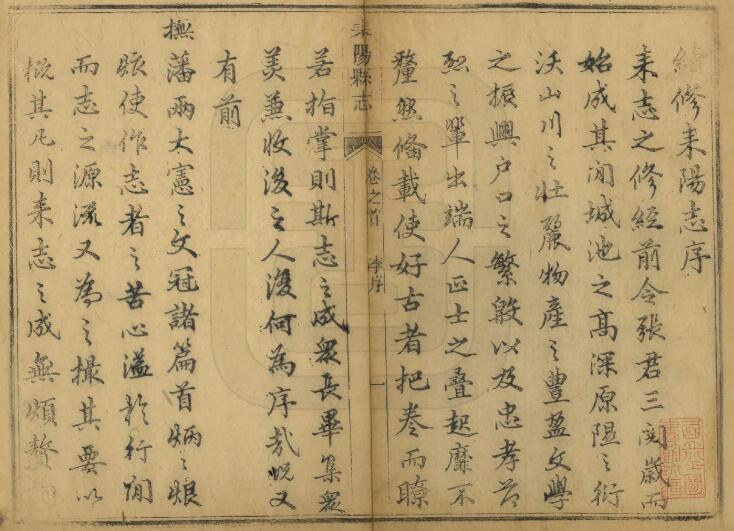 續修耒陽志序
耒志之修經前令張君三閱歲而
始成其間城池之高深原隰之衍
沃山川之壯麗物產之豐盈文學
之振興戶口之繁殷以及忠孝節
烈之輩出端人正士之疊起靡不
釐然備載使好古者把卷而瞭
耒陽縣志
卷之首 李序 一
若指掌則斯志之成眾長畢集眾
美兼收後之人復何為序哉況又
有前
撫藩兩大憲之文冠諸篇首炳炳烺
烺使作志者之苦心溢於行間
而志之源流又為之撮其要以
概其凡則耒志之成無煩贅